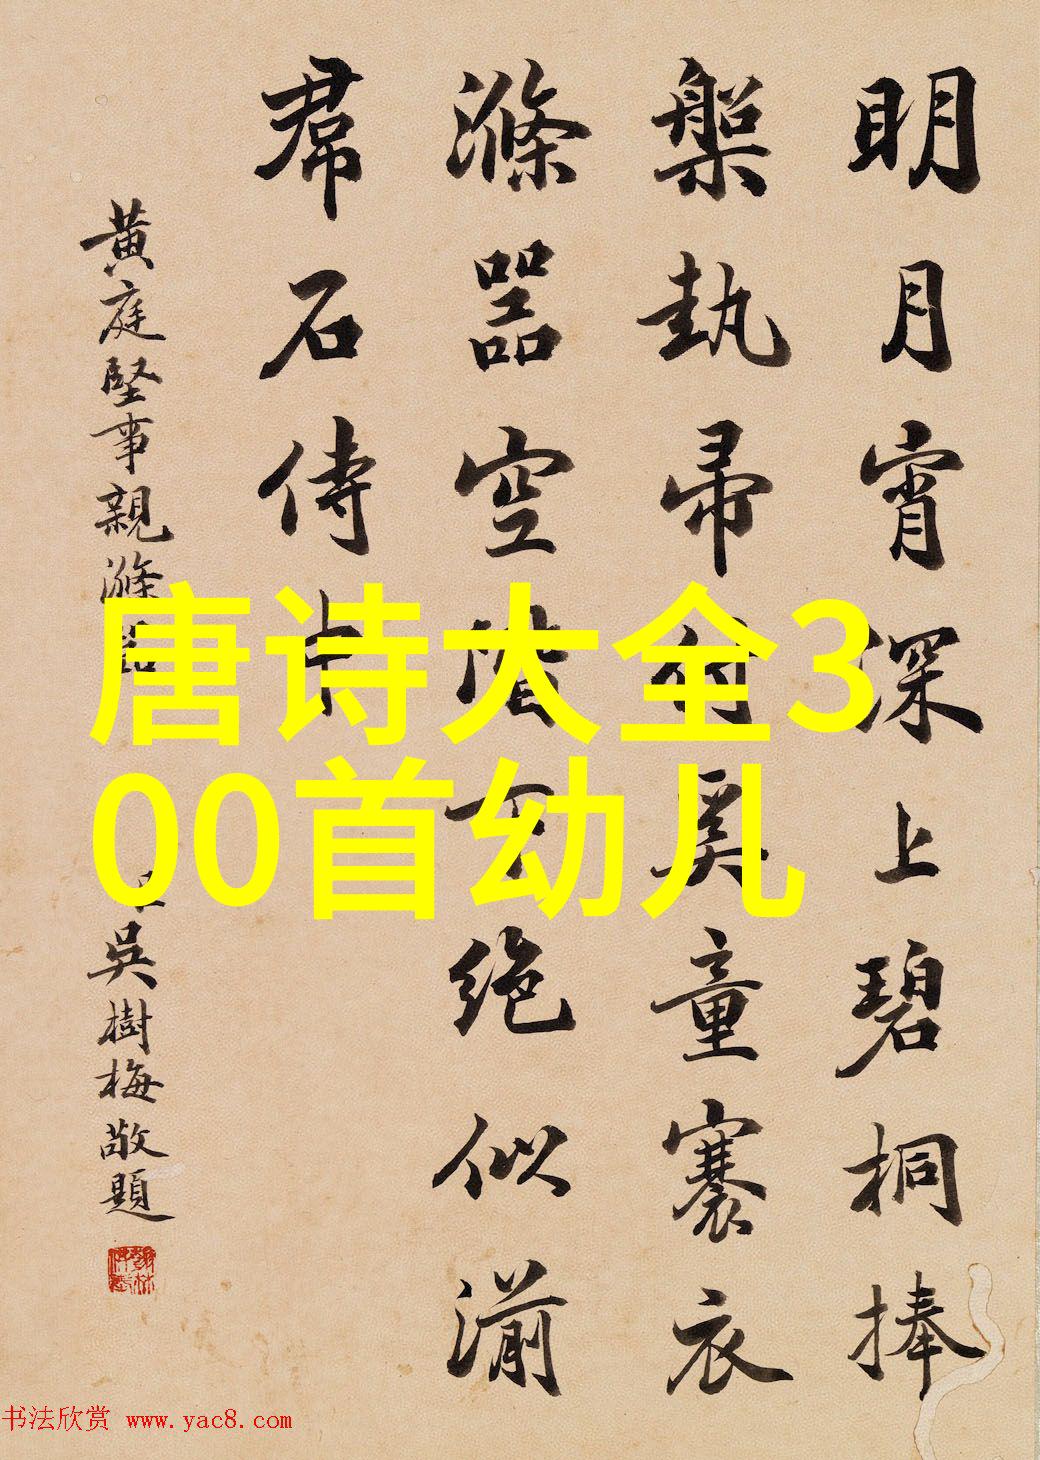 明月宵深上碧桐捧
槃執帚付奚童褰衣
滌器空階下絕似湔
帬石侍中
黃庭堅事親滌器
吳樹梅敬題
唐诗大全3
00首幼儿
书法欣赏 www.yac8.com